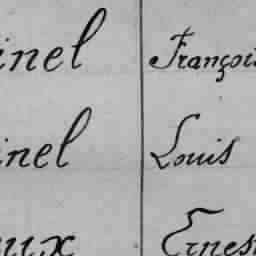 inel François
inel Louis
aux Ernest